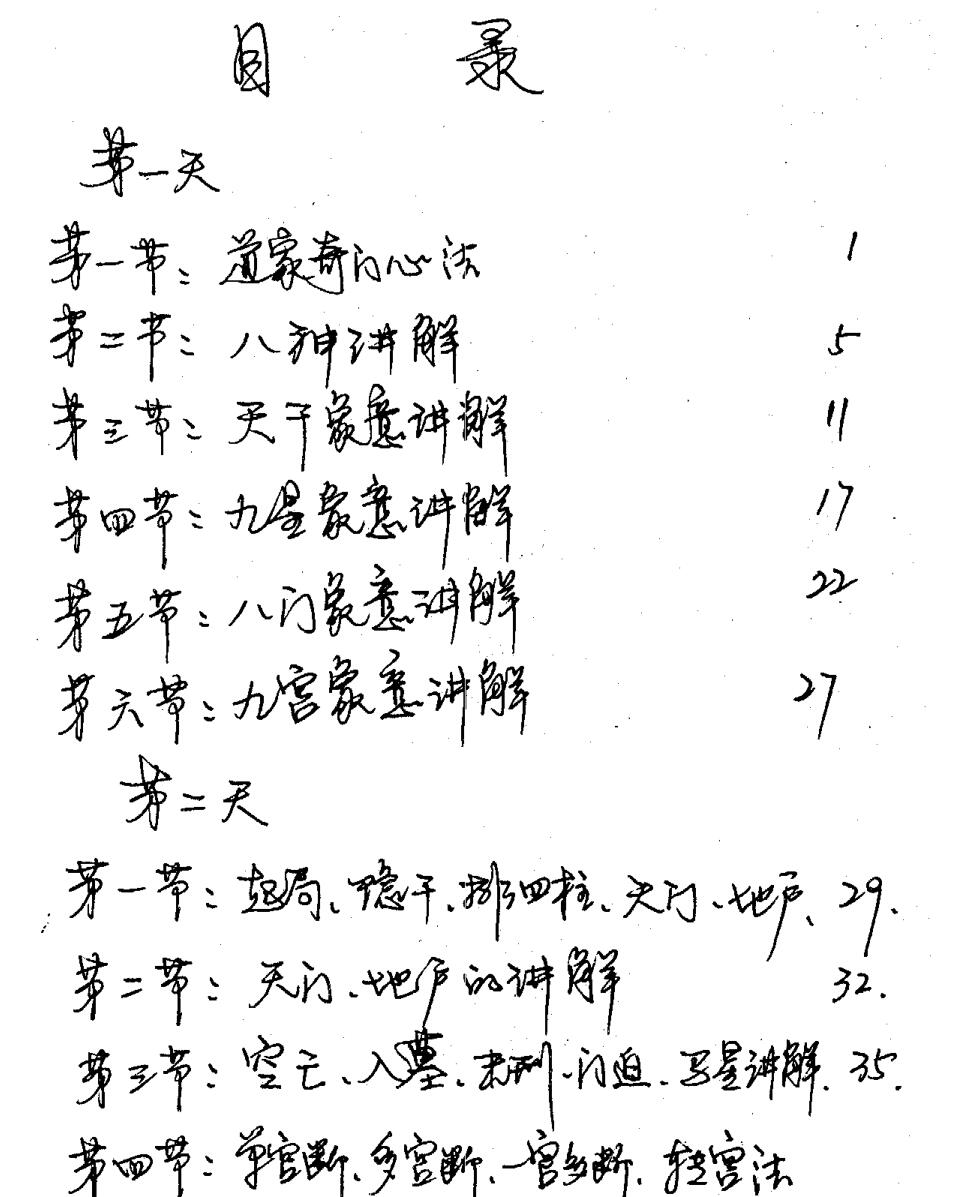 目 录
第一天
第一节：道家奇门心法 1
第二节：八神讲解 5
第三节：天干象意讲解 11
第四节：九星象意讲解 17
第五节：八门象意讲解 22
第六节：九宫象意讲解 27
第二天
第一节：起局、隐干、排四柱、天门、地户、29.
第二节：天门、地户的讲解 32.
第三节：空亡、入墓、击刑、门迫、马星讲解、35.
第四节：单宫断、多宫断、一宫多断、转宫法